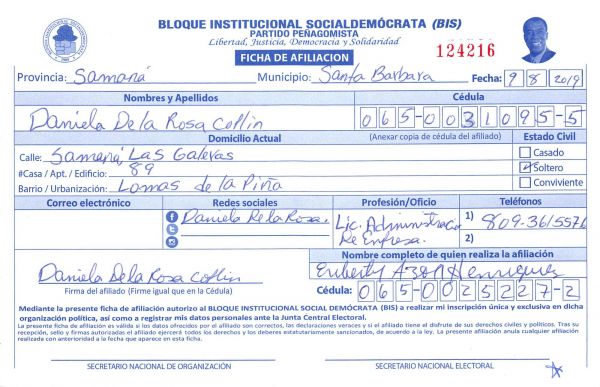 BLOQUE INSTITUCIONAL SOCIALDEMÓCRATA (BIS)
PARTIDO PEÑAGOMISTA
Libertad, Justicia, Democracia y Solidaridad
FICHA DE AFILIACION
124216
Provincia: Samaná Municipio: Santa Barbara Fecha: 9 8 2019
Nombres y Apellidos Cédula
Daniela De la Rosa Collin 065-0031095-5
Domicilio Actual (Anexar copia de cédula del afiliado) Estado Civil
Calle: Samaná, Las Galeras Casado
#Casa / Apt. / Edificio: 89 Soltero
Barrio / Urbanización: Lomas de la Piña Conviviente
Correo electrónico Redes sociales Profesión/Oficio Teléfonos
Daniela De la Rosa. Lic. Administración 1) 809-3615576
De Empresa. 2)
Nombre completo de quien realiza la afiliación
Daniela De la Rosa Collin Henriquez
Firma del afiliado (Firme igual que en la Cédula) Cédula: 065-0025227-2
Mediante la presente ficha de afiliación autorizo al BLOQUE INSTITUCIONAL SOCIAL DEMÓCRATA (BIS) a realizar mi inscripción única y exclusiva en dicha
organización política, así como a registrar mis datos personales ante la Junta Central Electoral.
La presente ficha de afiliación es válida si los datos ofrecidos por el afiliado son correctos, las declaraciones veraces y si el afiliado tiene el disfrute de sus derechos civiles y políticos. Tras su
recepción, sello y firmas autorizadas el afiliado ejercerá todos los derechos y los deberes estatutariamente sancionados, de acuerdo a la ley. La presente afiliación anula cualquier afiliación
realizada con anterioridad a la fecha que aparece en esta ficha.
SECRETARIO NACIONAL DE ORGANIZACIÓN SECRETARIO NACIONAL ELECTORAL